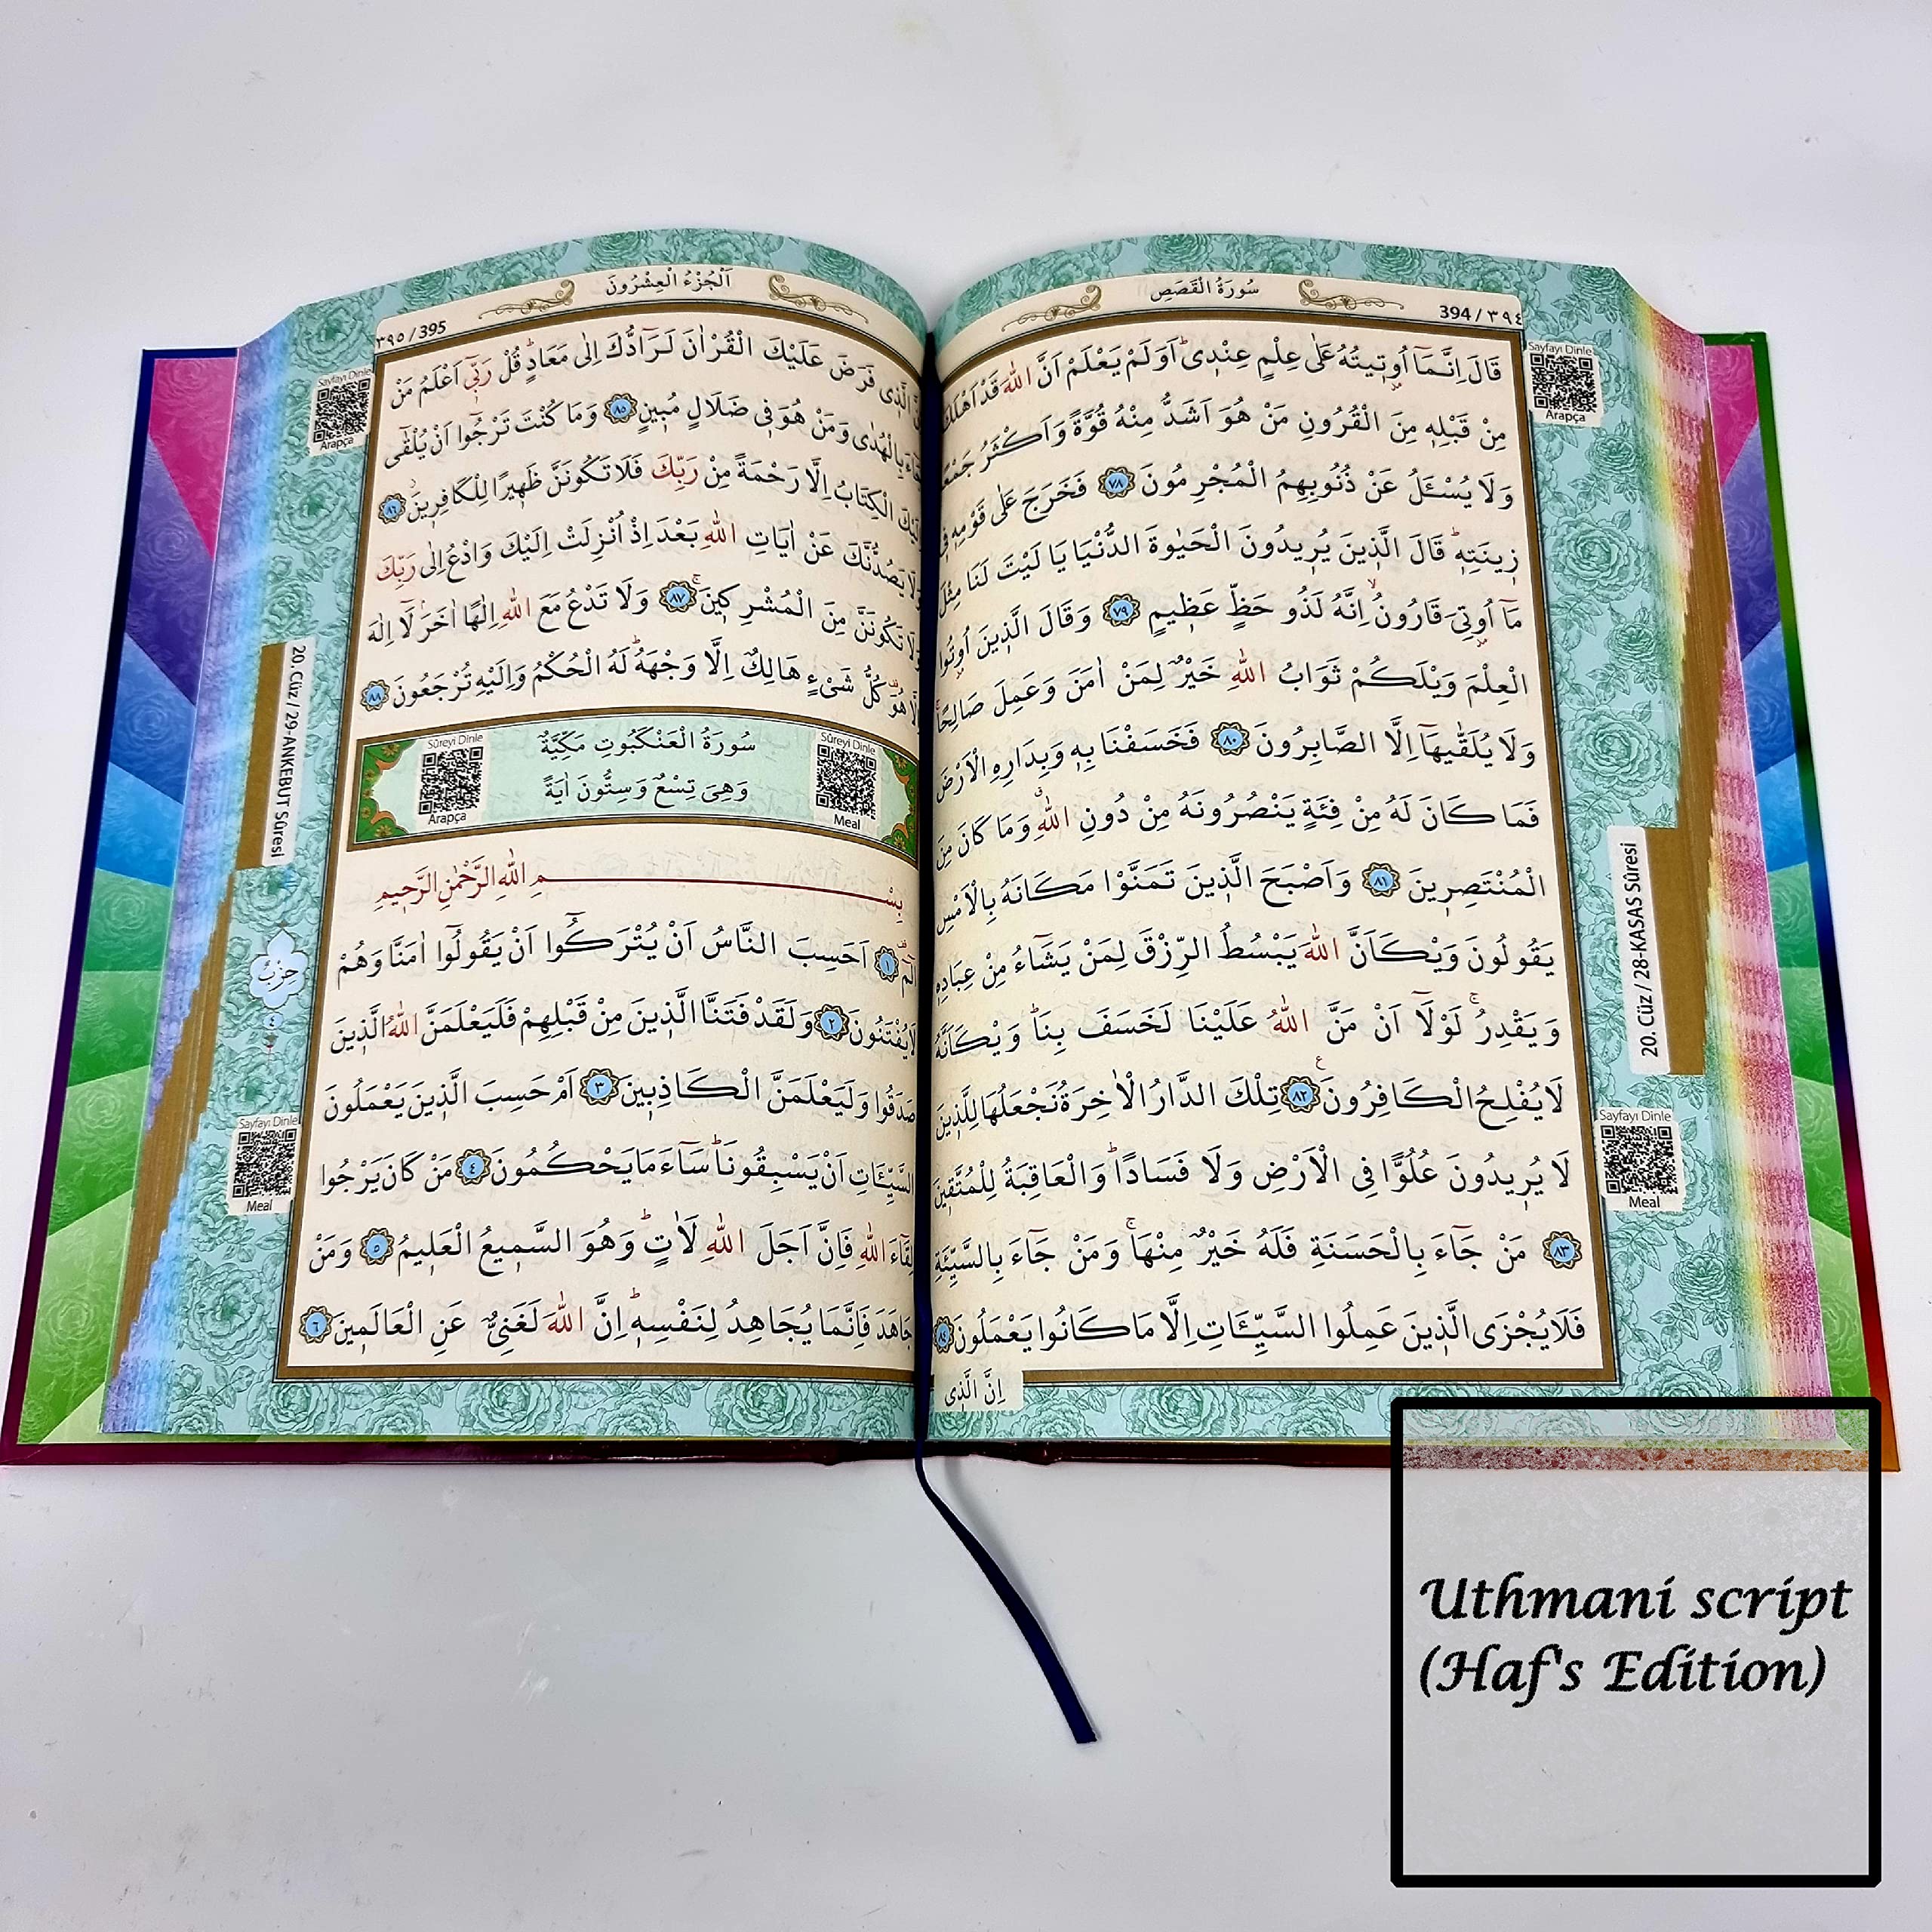 سُورَةُ الْقَصَصِ
394 / ٣٩٤
قَالَ اِنَّمَٓا اُو۫ت۪يتُهُ عَلٰى عِلْمٍ عِنْد۪يۜ اَوَلَمْ يَعْلَمْ اَنَّ اللّٰهَ قَدْ اَهْلَكَ
مِنْ قَبْلِه۪ مِنَ الْقُرُونِ مَنْ هُوَ اَشَدُّ مِنْهُ قُوَّةً وَاَكْثَرُ جَمْعاًۜ
وَلَا يُسْـَٔلُ عَنْ ذُنُوبِهِمُ الْمُجْرِمُونَ ٧٨ فَخَرَجَ عَلٰى قَوْمِه۪ ف۪ي
ز۪ينَتِه۪ۜ قَالَ الَّذ۪ينَ يُر۪يدُونَ الْحَيٰوةَ الدُّنْيَا يَا لَيْتَ لَنَا مِثْلَ
مَٓا اُو۫تِيَ قَارُونُۙ اِنَّهُ لَذُو حَظٍّ عَظ۪يمٍ ٧٩ وَقَالَ الَّذ۪ينَ اُو۫تُوا
الْعِلْمَ وَيْلَكُمْ ثَوَابُ اللّٰهِ خَيْرٌ لِمَنْ اٰمَنَ وَعَمِلَ صَالِحاًۚ
وَلَا يُلَقّٰيهَٓا اِلَّا الصَّابِرُونَ ٨٠ فَخَسَفْنَا بِه۪ وَبِدَارِهِ الْاَرْضَ
فَمَا كَانَ لَهُ مِنْ فِئَةٍ يَنْصُرُونَهُ مِنْ دُونِ اللّٰهِۗ وَمَا كَانَ مِنَ
الْمُنْتَصِر۪ينَ ٨١ وَاَصْبَحَ الَّذ۪ينَ تَمَنَّوْا مَكَانَهُ بِالْاَمْسِ
يَقُولُونَ وَيْكَاَنَّ اللّٰهَ يَبْسُطُ الرِّزْقَ لِمَنْ يَشَٓاءُ مِنْ عِبَادِه۪
وَيَقْدِرُۚ لَوْلَٓا اَنْ مَنَّ اللّٰهُ عَلَيْنَا لَخَسَفَ بِنَاۜ وَيْكَاَنَّهُ
لَا يُفْلِحُ الْكَافِرُونَ ٨٢ تِلْكَ الدَّارُ الْاٰخِرَةُ نَجْعَلُهَا لِلَّذ۪ينَ
لَا يُر۪يدُونَ عُلُوًّا فِي الْاَرْضِ وَلَا فَسَاداًۜ وَالْعَاقِبَةُ لِلْمُتَّق۪ينَ
٨٣ مَنْ جَٓاءَ بِالْحَسَنَةِ فَلَهُ خَيْرٌ مِنْهَاۚ وَمَنْ جَٓاءَ بِالسَّيِّئَةِ
فَلَا يُجْزَى الَّذ۪ينَ عَمِلُوا السَّيِّـَٔاتِ اِلَّا مَا كَانُوا يَعْمَلُونَ ٨٤
اِنَّ الَّذ۪ي
Sayfayı Dinle
Arapça
20. Cüz / 28-KASAS Sûresi
Sayfayı Dinle
Meal
اَلْجُزْءُ الْعِشْرُونَ
٣٩٥ / 395
الَّذ۪ي فَرَضَ عَلَيْكَ الْقُرْاٰنَ لَـرَٓادُّكَ اِلٰى مَعَادٍۜ قُلْ رَبّ۪ٓي اَعْلَمُ مَنْ
جَٓاءَ بِالْهُدٰى وَمَنْ هُوَ ف۪ي ضَلَالٍ مُب۪ينٍ ٨٥ وَمَا كُنْتَ تَرْجُٓوا اَنْ يُلْقٰٓى
اِلَيْكَ الْكِتَابُ اِلَّا رَحْمَةً مِنْ رَبِّكَ فَلَا تَكُونَنَّ ظَه۪يراً لِلْكَافِر۪ينَۘ ٨٦
وَلَا يَصُدُّنَّكَ عَنْ اٰيَاتِ اللّٰهِ بَعْدَ اِذْ اُنْزِلَتْ اِلَيْكَ وَادْعُ اِلٰى رَبِّكَ
وَلَا تَكُونَنَّ مِنَ الْمُشْرِك۪ينَۚ ٨٧ وَلَا تَدْعُ مَعَ اللّٰهِ اِلٰهاً اٰخَرَۢ لَٓا اِلٰهَ
اِلَّا هُوَ۠ كُلُّ شَيْءٍ هَالِكٌ اِلَّا وَجْهَهُۜ لَهُ الْحُكْمُ وَاِلَيْهِ تُرْجَعُونَ ٨٨
سُورَةُ الْعَنْكَبُوتِ مَكِّيَّةٌ
وَهِيَ تِسْعٌ وَسِتُّونَ اٰيَةً
Sûreyi Dinle
Arapça
Sûreyi Dinle
Meal
بِسْمِ اللّٰهِ الرَّحْمٰنِ الرَّح۪يمِ
الٓمٓۜ ١ اَحَسِبَ النَّاسُ اَنْ يُتْرَكُٓوا اَنْ يَقُولُٓوا اٰمَنَّا وَهُمْ
لَا يُفْتَنُونَ ٢ وَلَقَدْ فَتَنَّا الَّذ۪ينَ مِنْ قَبْلِهِمْ فَلَيَعْلَمَنَّ اللّٰهُ الَّذ۪ينَ
صَدَقُوا وَلَيَعْلَمَنَّ الْكَاذِب۪ينَ ٣ اَمْ حَسِبَ الَّذ۪ينَ يَعْمَلُونَ
السَّيِّـَٔاتِ اَنْ يَسْبِقُونَاۜ سَٓاءَ مَا يَحْكُمُونَ ٤ مَنْ كَانَ يَرْجُوا
لِقَٓاءَ اللّٰهِ فَاِنَّ اَجَلَ اللّٰهِ لَاٰتٍۜ وَهُوَ السَّم۪يعُ الْعَل۪يمُ ٥ وَمَنْ
جَاهَدَ فَاِنَّمَا يُجَاهِدُ لِنَفْسِه۪ۜ اِنَّ اللّٰهَ لَغَنِيٌّ عَنِ الْعَالَم۪ينَ ٦
Sayfayı Dinle
Arapça
20. Cüz / 29-ANKEBUT Sûresi
حِزْبٌ
٤
Sayfayı Dinle
Meal
Uthmani script
(Haf's Edition)